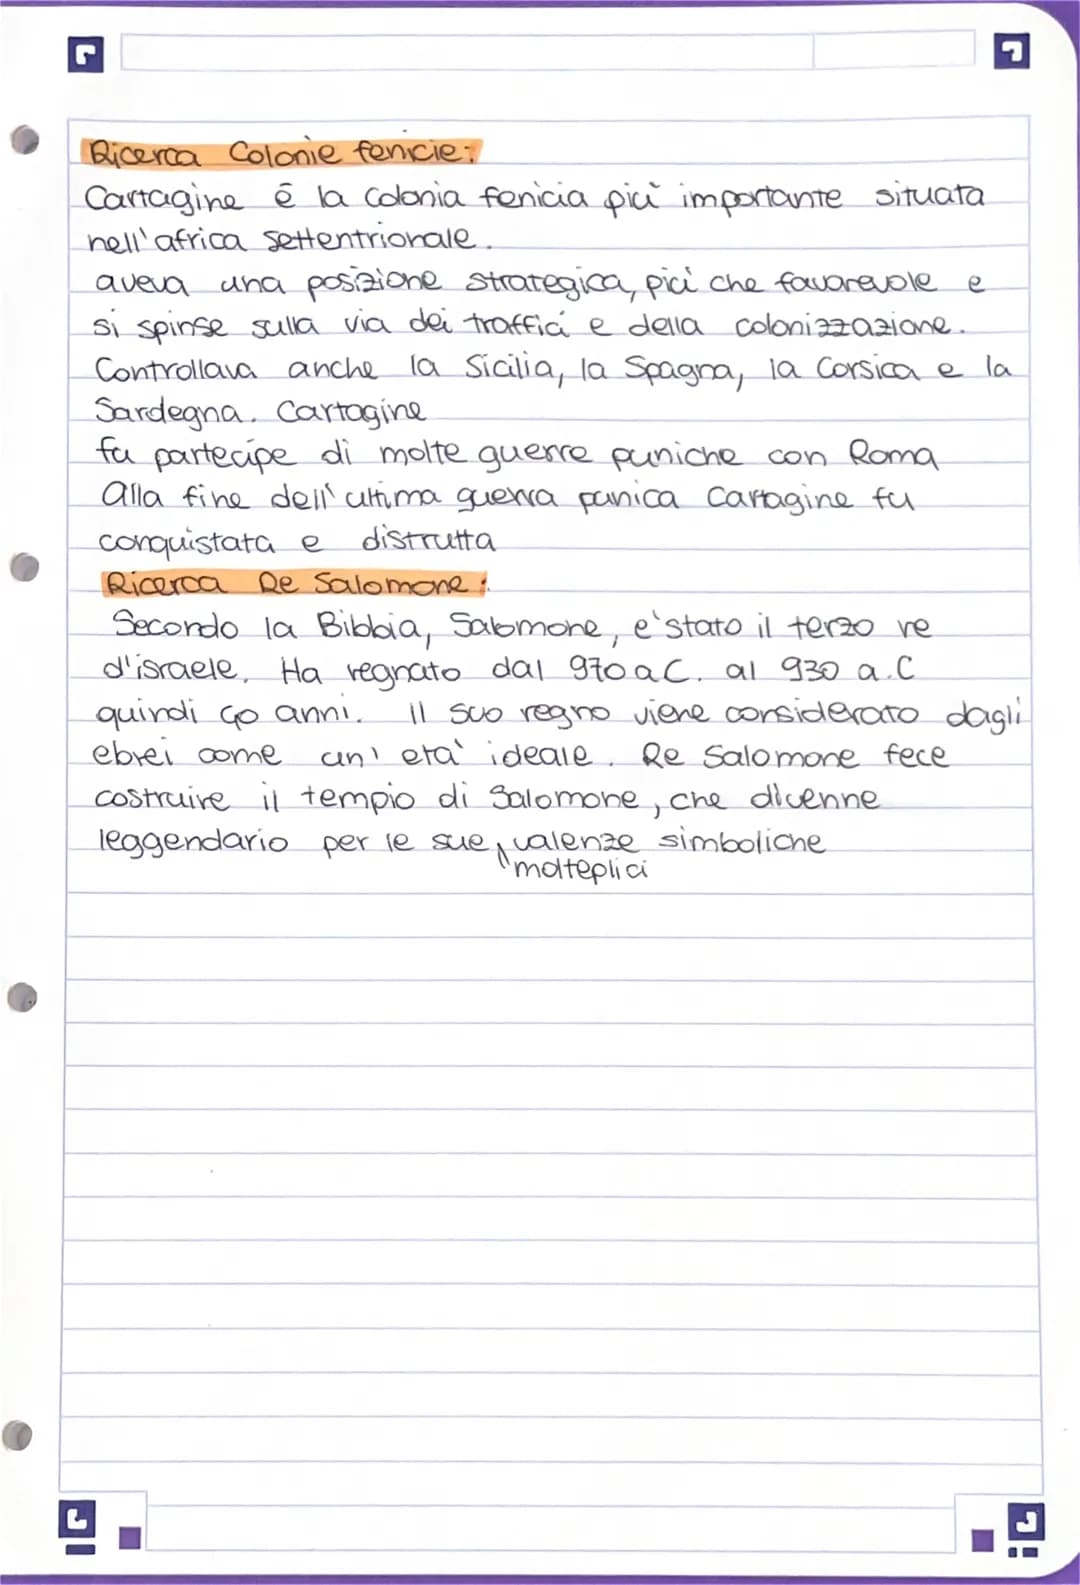 Ricerca Colonie fenicie:
Cartagine è la colonia fenicia più importante situata
nell'africa settentrionale.
aveva una posizione strategica, più che favorevole e
si spinse sulla via dei traffici e della colonizzazione.
Controllava anche la Sicilia, la Spagna, la Corsica e la
Sardegna. Cartagine
fu partecipe di molte guerre puniche con Roma
Alla fine dell'ultima guerra punica Cartagine fu
conquistata e distrutta
Ricerca Re Salomone:
Secondo la Bibbia, Salomone, e'stato il terzo re
d'israele. Ha regnato dal 970 a.C. al 930 a.C
quindi 40 anni. Il suo regno viene considerato dagli
ebrei come un' eta' ideale. Re Salomone fece
costruire il tempio di Salomone, che divenne
leggendario per le sue valenze simboliche
molteplici